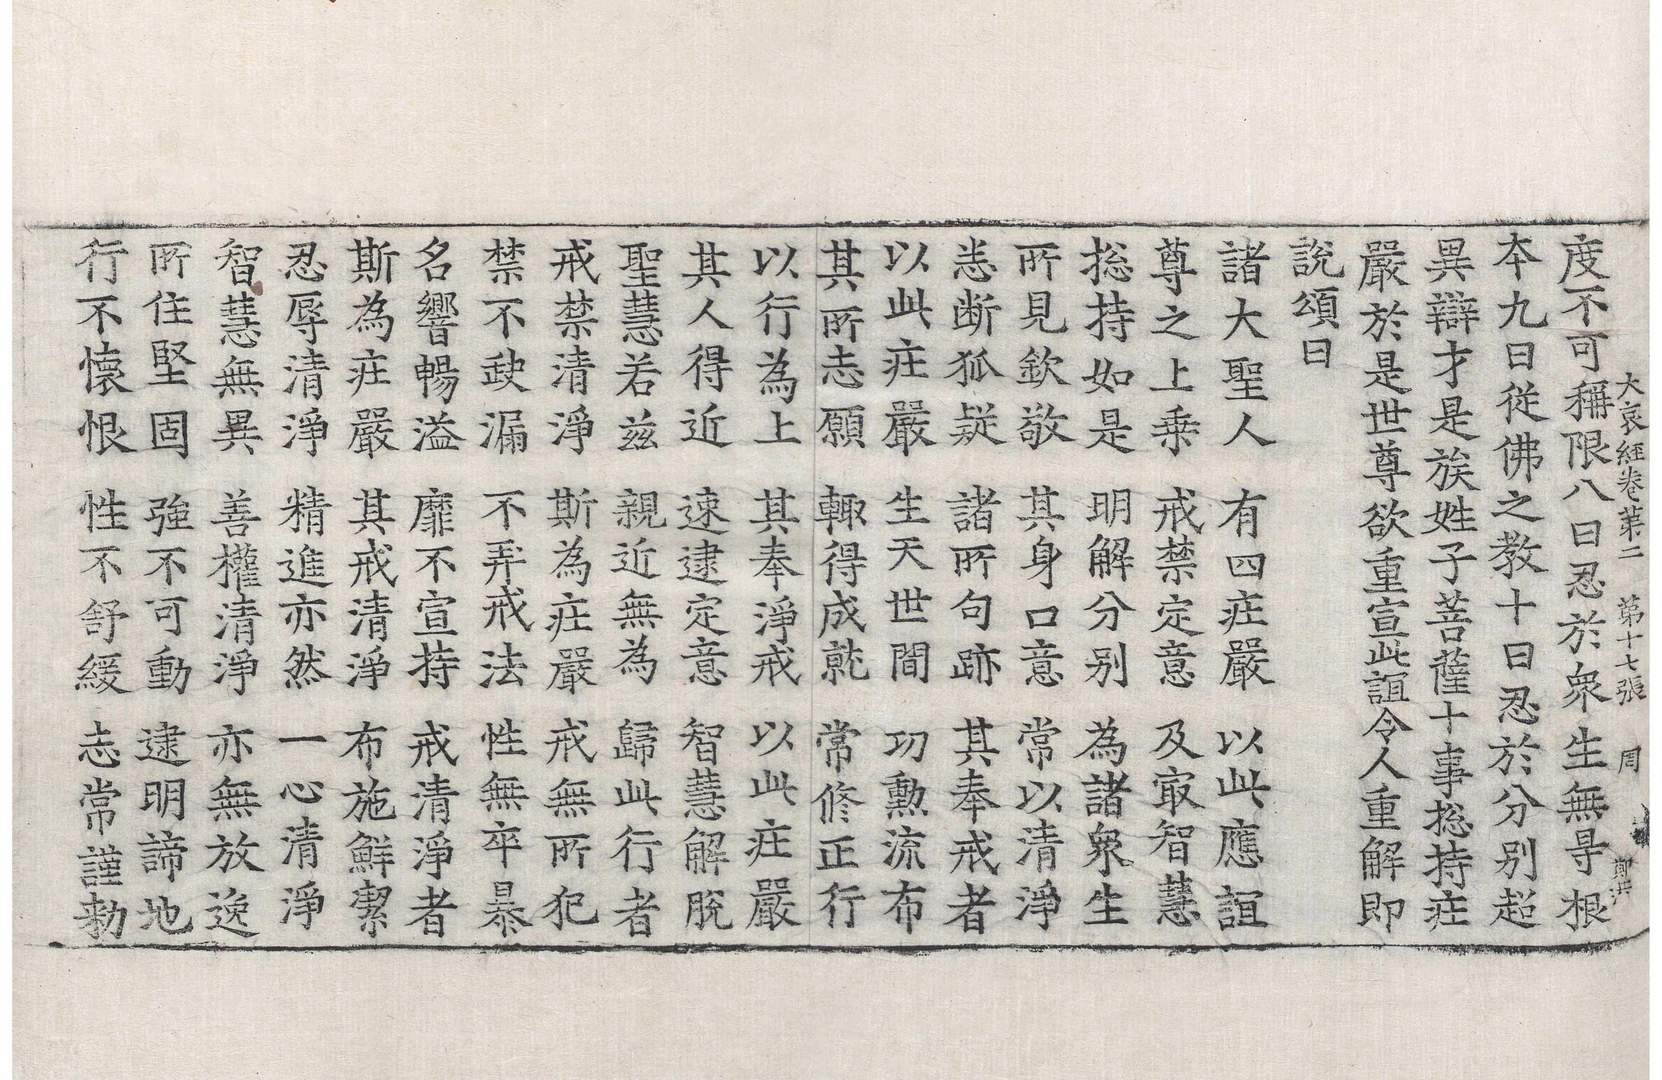 大哀經卷第二　第十七張　周
度不可稱限八曰忍於衆生無㝵根
本九曰從佛之教十曰忍於分別超
異辯才是族姓子菩薩十事揔持莊
嚴於是世尊欲重宣此誼令人重解即
說頌曰
諸大聖人　有四莊嚴　以此應誼
尊之上乘　戒禁定意　及㝡智慧
揔持如是　明解分別　為諸衆生
所見欽敬　其身口意　常以清淨
悉断狐疑　諸所句跡　其奉戒者
以此莊嚴　生天世間　功勳流布
其所志願　輙得成就　常修正行
以行為上　其奉淨戒　以此莊嚴
其人得近　速逮定意　智慧解脫
聖慧若茲　親近無為　歸此行者
戒禁清淨　斯為莊嚴　戒無所犯
禁不缺漏　不弄戒法　性無卒暴
名響暢溢　靡不宣持　戒清淨者
斯為莊嚴　其戒清淨　布施鮮潔
忍辱清淨　精進亦然　一心清淨
智慧無異　善權清淨　亦無放逸
所住堅固　強不可動　逮明諦地
行不懷恨　性不舒緩　志常謹勅